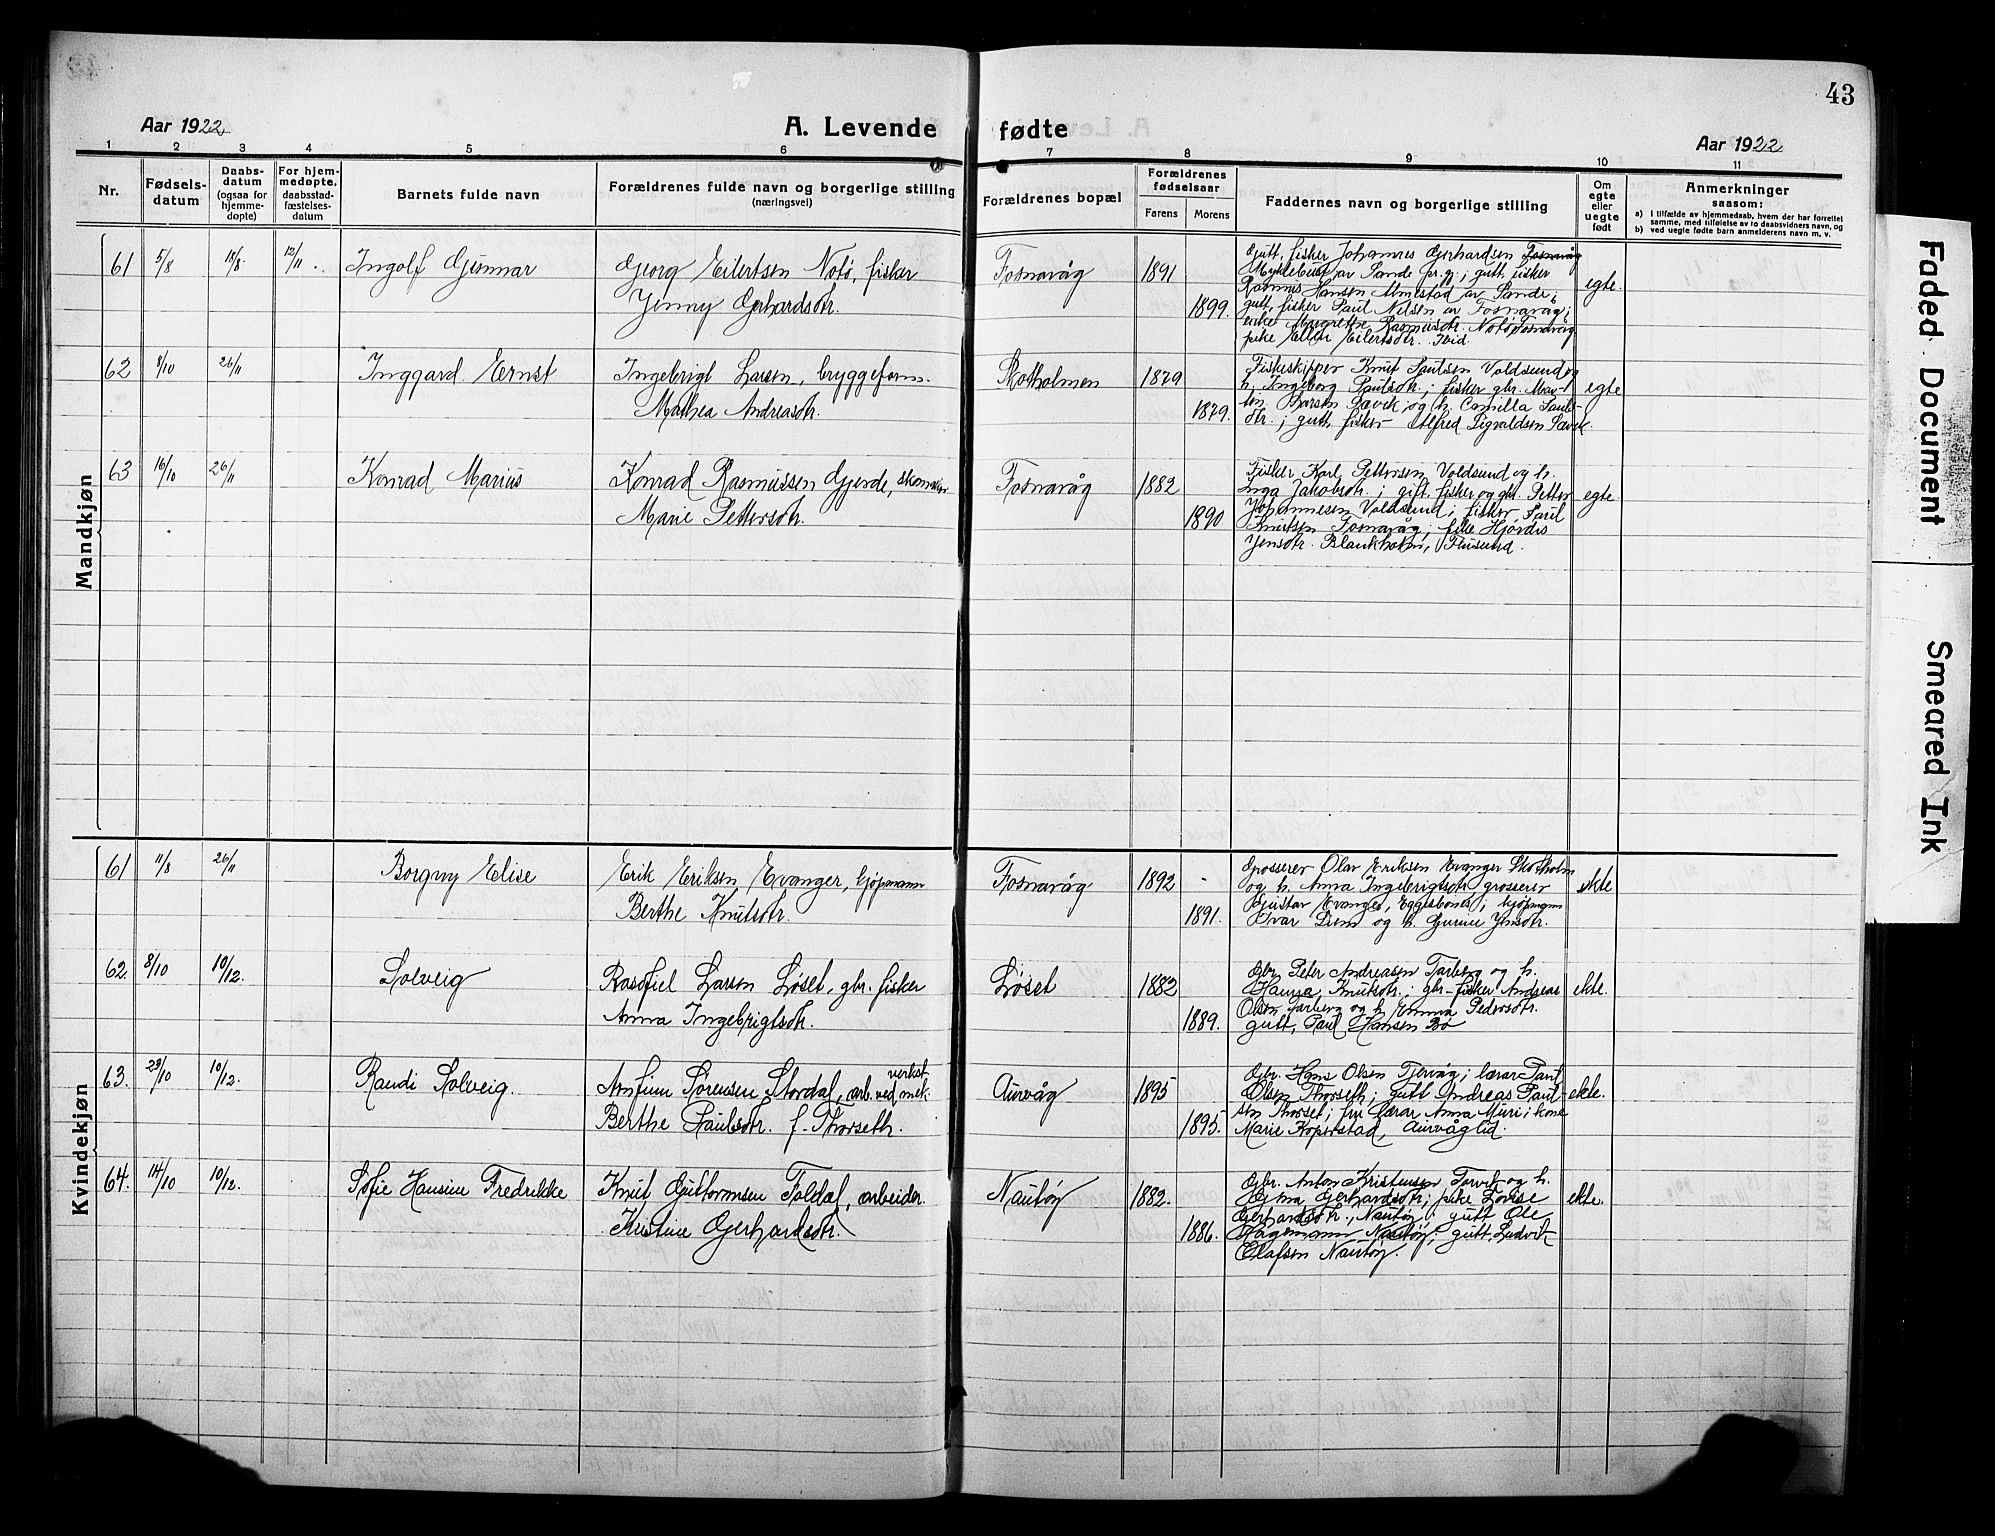 43
Aar 1922
A. Levende fødte
Aar 1922
1 2 3 4 5 6 7 8 9 10 11
Nr.
Fødsels-
datum
Daabs-
datum
(ogsaa for
hjemme-
døpte)
For hjem-
medøpte,
daabsstad-
fæstelses-
datum
Barnets fulde navn
Forældrenes fulde navn og borgerlige stilling
(næringsvei)
Forældrenes bopæl
Forældrenes
fødselsaar
Farens
Morens
Faddernes navn og borgerlige stilling
Om
egte
eller
uegte
født
Anmerkninger
saasom:
a) I tilfælde av hjemmedaab, hvem der har forrettet
samme, med tilføielse av to daabsvidners navn, og
b) ved uegte fødte barn anmelderens navn m. v.
Mandkjøn
61 5/8 18/8 12/11 Ingolf Gunnar
Georg Eilertsen Notø, fisker
Jenny Gerhardsdtr.
Fosnavåg 1891
1899.
Gutt, fisker Johannes Gerhardsen Fosnavåg
Myklebust av Sande pr.gj.; gutt, fisker
Rasmus Hansen Almestad av Sande;
gutt, fisker Paul Nilsen av Fosnavåg;
enke Margrethe Rasmusdtr. Notø, Fosnavåg
pike Ellen Eilertsdtr. Ibid.
egte.
62 8/10 26/11 Inggard Ernst
Ingebrigt Larsen, bryggeform.
Mathea Andreasdtr.
Skotholmen 1879
1879.
Fiskeskipper Knut Paulsen Voldsund og
h. Ingeborg Paulsdtr.; fisker gbr. Mar-
tin Larsen Sævik, og h. Camilla Pauls-
dtr.; gutt, fisker Alfred Sigvaldsen Sævik.
egte
63 16/10 26/11 Konrad Marius
Konrad Rasmussen Gjerde, skomaker
Marie Pettersdtr.
Fosnavåg 1882
1890
Fisker Karl Pettersen Voldsund og h.
Inga Jakobsdtr.; gift, fisker og gbr. Petter
Johannesen Voldsund; fisker Paul
Knutsen Fosnavåg; pike Hjørdis
Jensdtr. Blankholm, Flusund.
egte
Kvindekjøn
61 11/8 26/11 Borgny Elise
Erik Eriksen Evanger, kjøpmann
Berthe Knutsdtr.
Fosnavåg 1892 -
1891.
Grosserer Olav Eriksen Evanger Skotholm
og h. Anna Ingebrigtsdtr, grosserer
Gustav Evanger, Eggesbones; kjøpmann
Ivar Diem og h. Gurine Jensdtr.
ekte
62. 8/10 10/12. Solveig
Rasofiel Larsen Løset, gbr. fisker
Anna Ingebrigtsdtr.
Løset 1882
1889.
Gbr. Peter Andreasen Tarberg og h.
Hanna Knutsdtr.; gbr-fisker Andreas
Olsen Tarberg og h. Emma Pedersdtr.
gutt, Paul Hansen Bø
ekte.
63. 23/10 10/12. Randi Solveig.
Arnfinn Sørensen Stordal, arb. ved mek. verkst.
Berthe Paulsdtr. f. Thorseth.
Aurvåg 1895
1895.
Gbr. Hans Olsen Tjervåg; lærar Paul
Olsen Thorseth; gutt Andreas Paul-
sen Thorset; fru lærar Anna Muri; kone
Marie Koperstad, Aurvåglid.
ekte.
64. 14/10 10/12. Sofie Hansine Fredrikke
Knut Guttormsen Foldal, arbeider.
Kristine Gerhardsdtr.
Nautøy 1882.
1886.
Gbr. Anton Kristensen Torvik og h.
Gjina Gerhardsdtr.; pike Lovise
Gerhardsdtr., Nautøy; gutt Ole
Hagemann Nautøy; gutt, Ludvik
Olafsen Nautøy.
ekte.
Faded Document
Smeared Ink